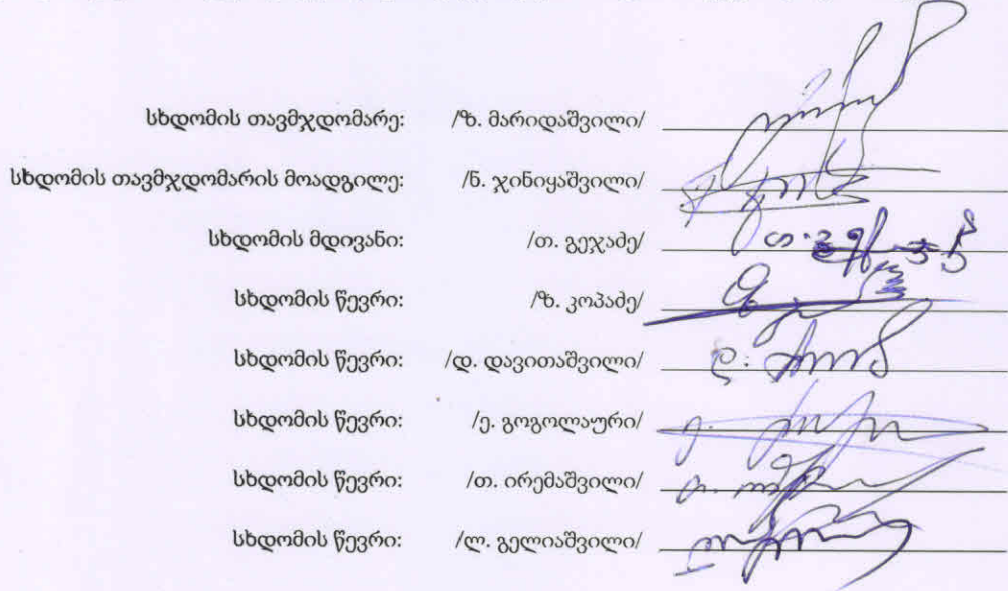 სხდომის თავმჯდომარე: /ზ. მარიდაშვილი/
სხდომის თავმჯდომარის მოადგილე: /ნ. ჯინიყაშვილი/
სხდომის მდივანი: /თ. გეჯაძე/
სხდომის წევრი: /ზ. კოპაძე/
სხდომის წევრი: /დ. დავითაშვილი/
სხდომის წევრი: /ე. გოგოლაური/
სხდომის წევრი: /თ. ირემაშვილი/
სხდომის წევრი: /ლ. გელიაშვილი/